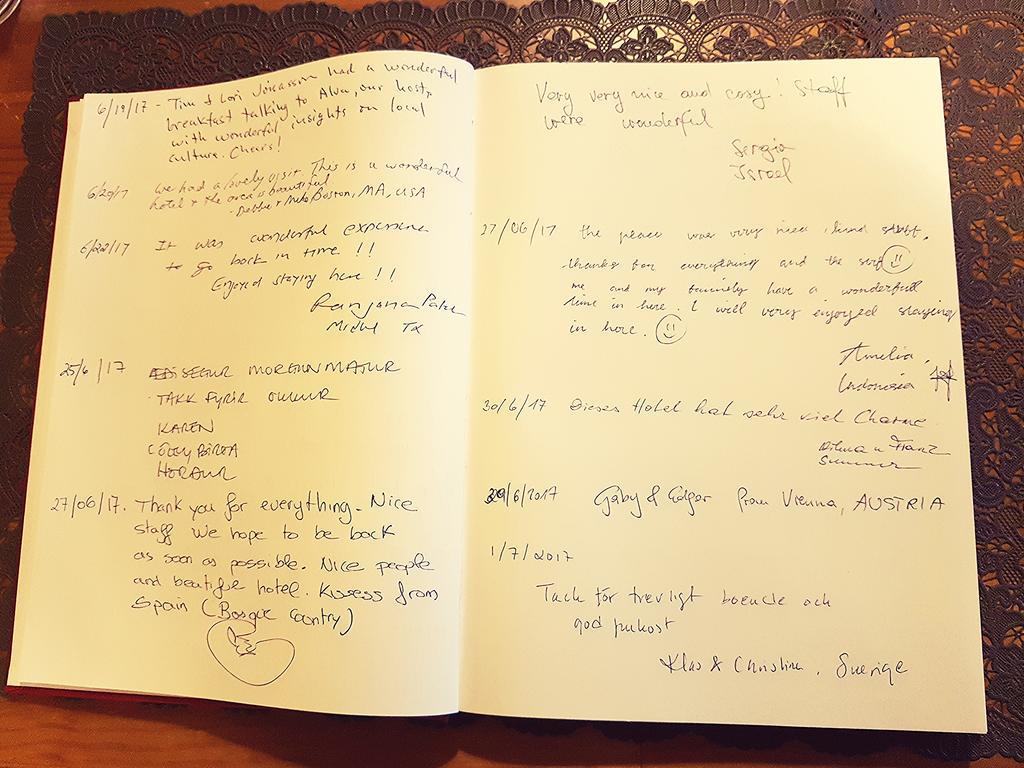 6/19/17 - Tim & Lori had a wonderful
breakfast talking to Alva, our host,
with wonderful insights on local
culture. Cheers!
6/20/17 We had a lovely visit. This is a wonderful
hotel & the area is beautiful
- Debbie & Boston, MA, USA
6/22/17 It was wonderful experience
to go back in time!!
Enjoyed staying here!!
Ranjana Patel
TX
25/6/17 MORGUNMATUR
TAKK FYRIR OKKUR
KAREN
27/06/17. Thank you for everything. Nice
staff we hope to be back
as soon as possible. Nice people
and beatiful hotel. Kissess from
Spain (Basque Country)
Very very nice and cosy! Staff
were wonderful
Sergio
Israel
27/06/17 the place was very nice, kind
thanks for everything and the
me and my family have a wonderfull
time in here. I will very enjoyed staying
in here.
Amelia,
Indonesia
30/6/17 Dieses Hotel hat sehr viel Charme
u Franz
29/6/2017 Gaby & Edgar from Vienna, AUSTRIA
1/7/2017
Tack för trevligt boende och
god frukost
Klas & Christina, Sverige